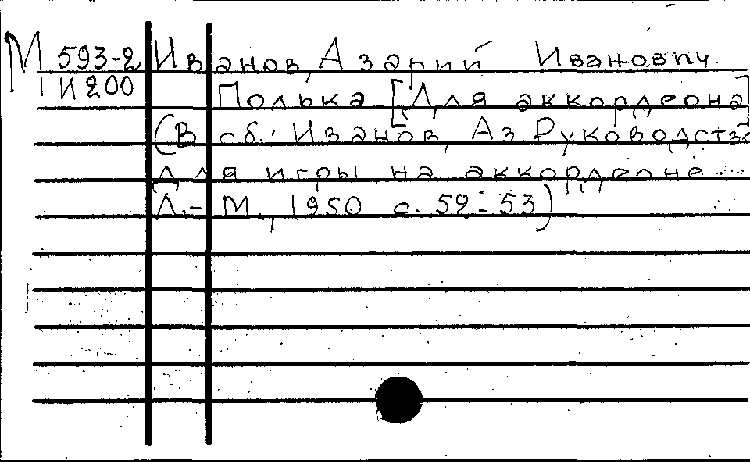 М 593-2 Иванов, Азарий Иванович.
И 200 Полька [Для аккордеона]
(В сб.: Иванов, Аз. Руководство
для игры на аккордеоне...
Л.-М., 1950 с. 52-53)